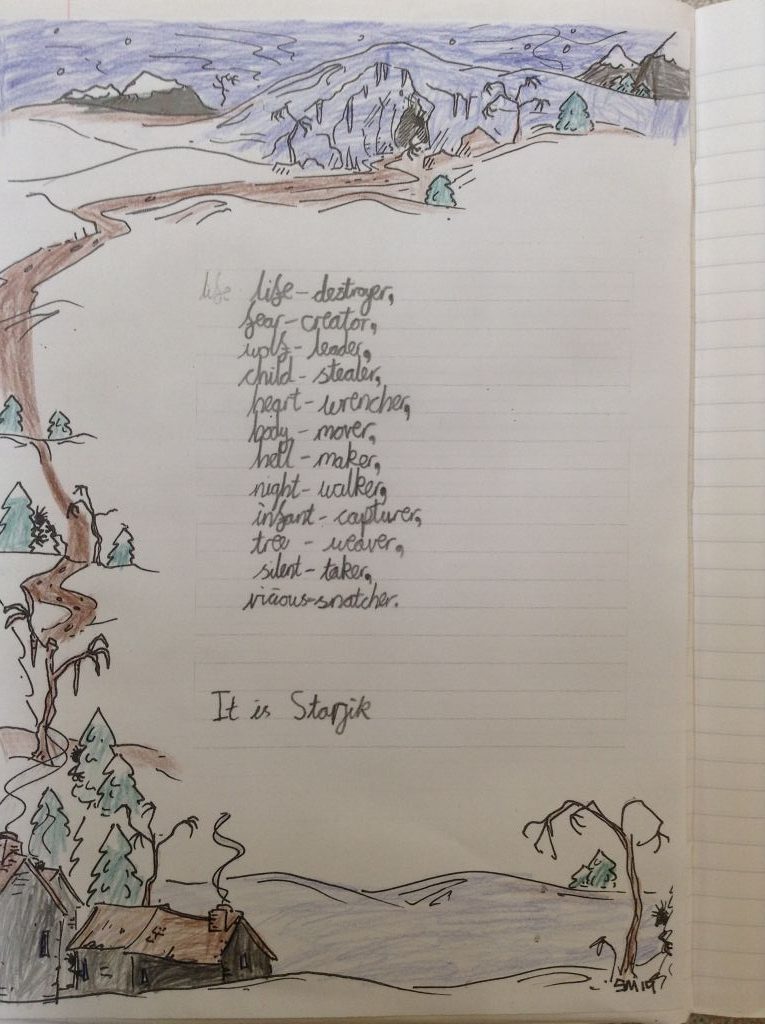 life life-destroyer,
fear-creator,
wolf-leader,
child-stealer,
heart-wrencher,
body-mover,
hell-maker,
night-walker,
infant-capturer,
tree-weaver,
silent-taker,
vicious-snatcher.
It is Starjik
SM19